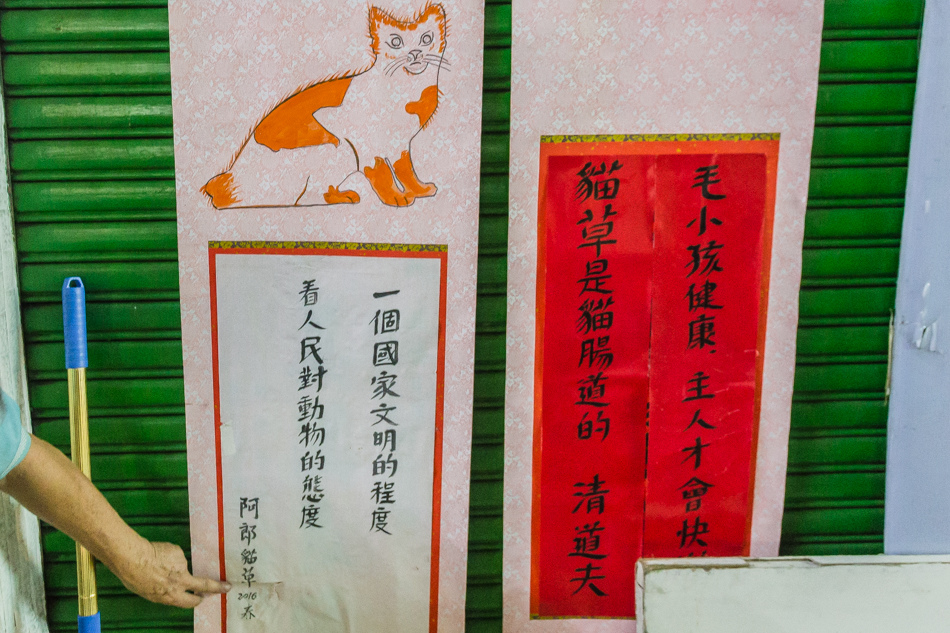 毛小孩健康．主人才會快
貓草是貓腸道的 清道夫
一個國家文明的程度
看人民對動物的態度
阿郎貓草
2016
春